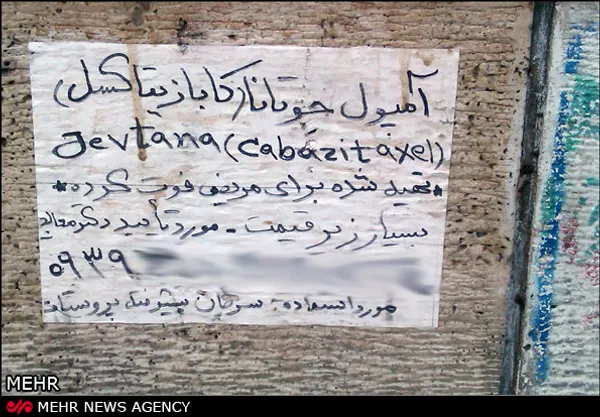 آمپول جوتانا (کابازیتاکسل)
Jevtana (Cabazitaxel)
*تهیه شده برای مریض فوت کرده*
بسیار زیر قیمت - مورد تأیید دکتر معالج
۰۹۳۹
مورد استفاده: سرطان پیشرفته پروستات
MEHR
MEHR NEWS AGENCY